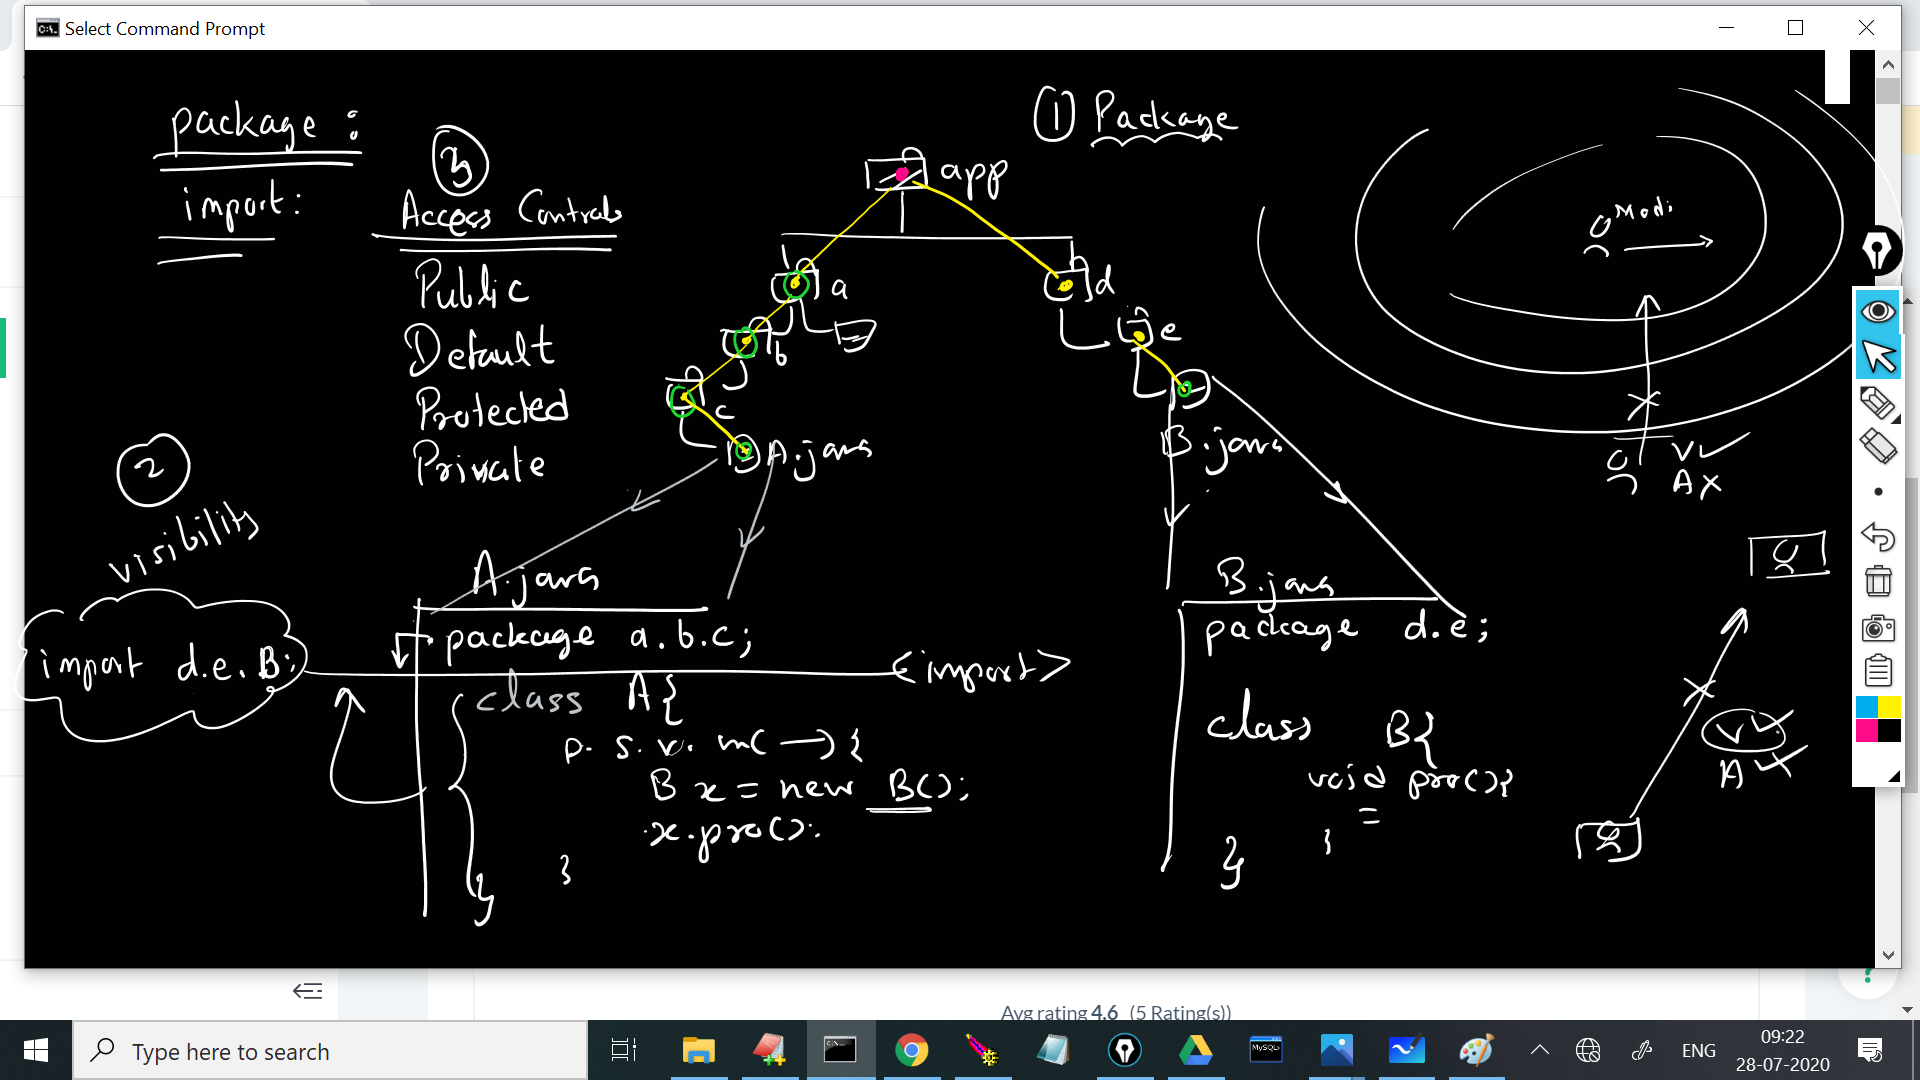 Select Command Prompt
package :
import :
3
Access Controls
Public
Default
Protected
Private
2
visibility
import d.e.B;
1 Package
app
a
b
c
A.java
d
e
B.java
Modi
V✓
A×
A.java
package a.b.c;
<import>
class A{
p. s. v. m( —) {
B x = new B();
x.pro();
}
}
B.java
package d.e;
class B{
void pro(){
=
}
}
V✓
A✓
Avg rating 4.6 (5 Rating(s))
Type here to search
MySQL
ENG
09:22
28-07-2020